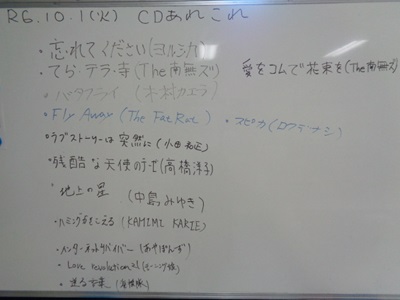 R6.10.1(火) CDあれこれ
・忘れてください(ヨルシカ)
・てら・テラ・寺(The南無ズ)
愛をコムで花束を(The南無ズ)
・バタフライ(木村カエラ)
・Fly Away (The Fat Rat)
・スピカ(ロクデナシ)
・ラブストーリーは突然に(小田和正)
・残酷な天使のテーゼ(高橋洋子)
・地上の星(中島みゆき)
・ハミングがきこえる(KAHIMI KARIE)
・インターネットサバイバー(あやぽんず)
・Love revolution 21 (モーニング娘)